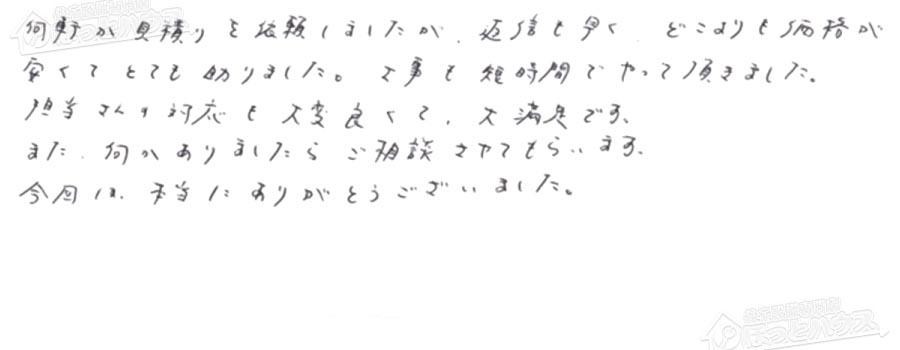 何軒か見積りを依頼しましたが、返信も早く、どこよりも価格が
安くてとても助りました。工事も短時間でやって頂きました。
担当さんの対応も大変良くて、大満足です。
また、何かありましたらご相談させてもらいます。
今回は、本当にありがとうございました。
ほっとハウス